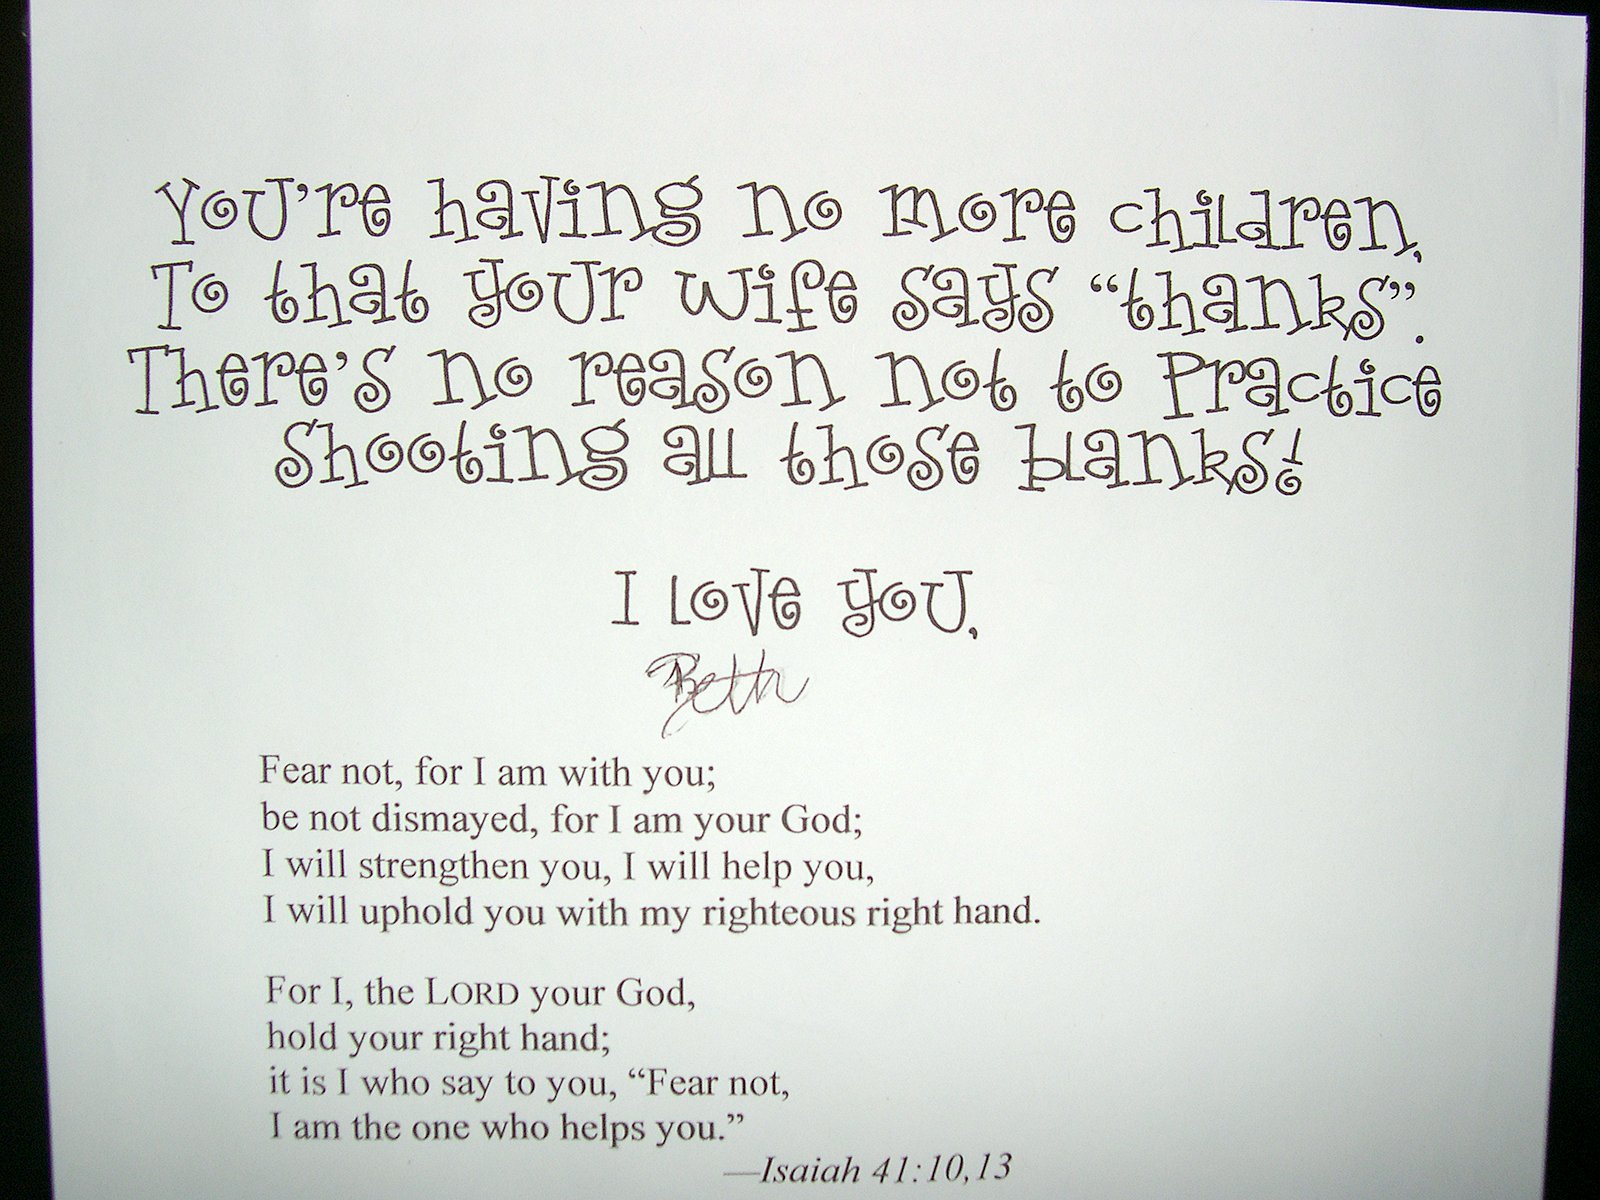 You're having no more children,
To that your wife says “thanks”.
There's no reason not to Practice
Shooting all those blanks!
I Love you,
Beth
Fear not, for I am with you;
be not dismayed, for I am your God;
I will strengthen you, I will help you,
I will uphold you with my righteous right hand.
For I, the LORD your God,
hold your right hand;
it is I who say to you, “Fear not,
I am the one who helps you.”
—Isaiah 41:10,13